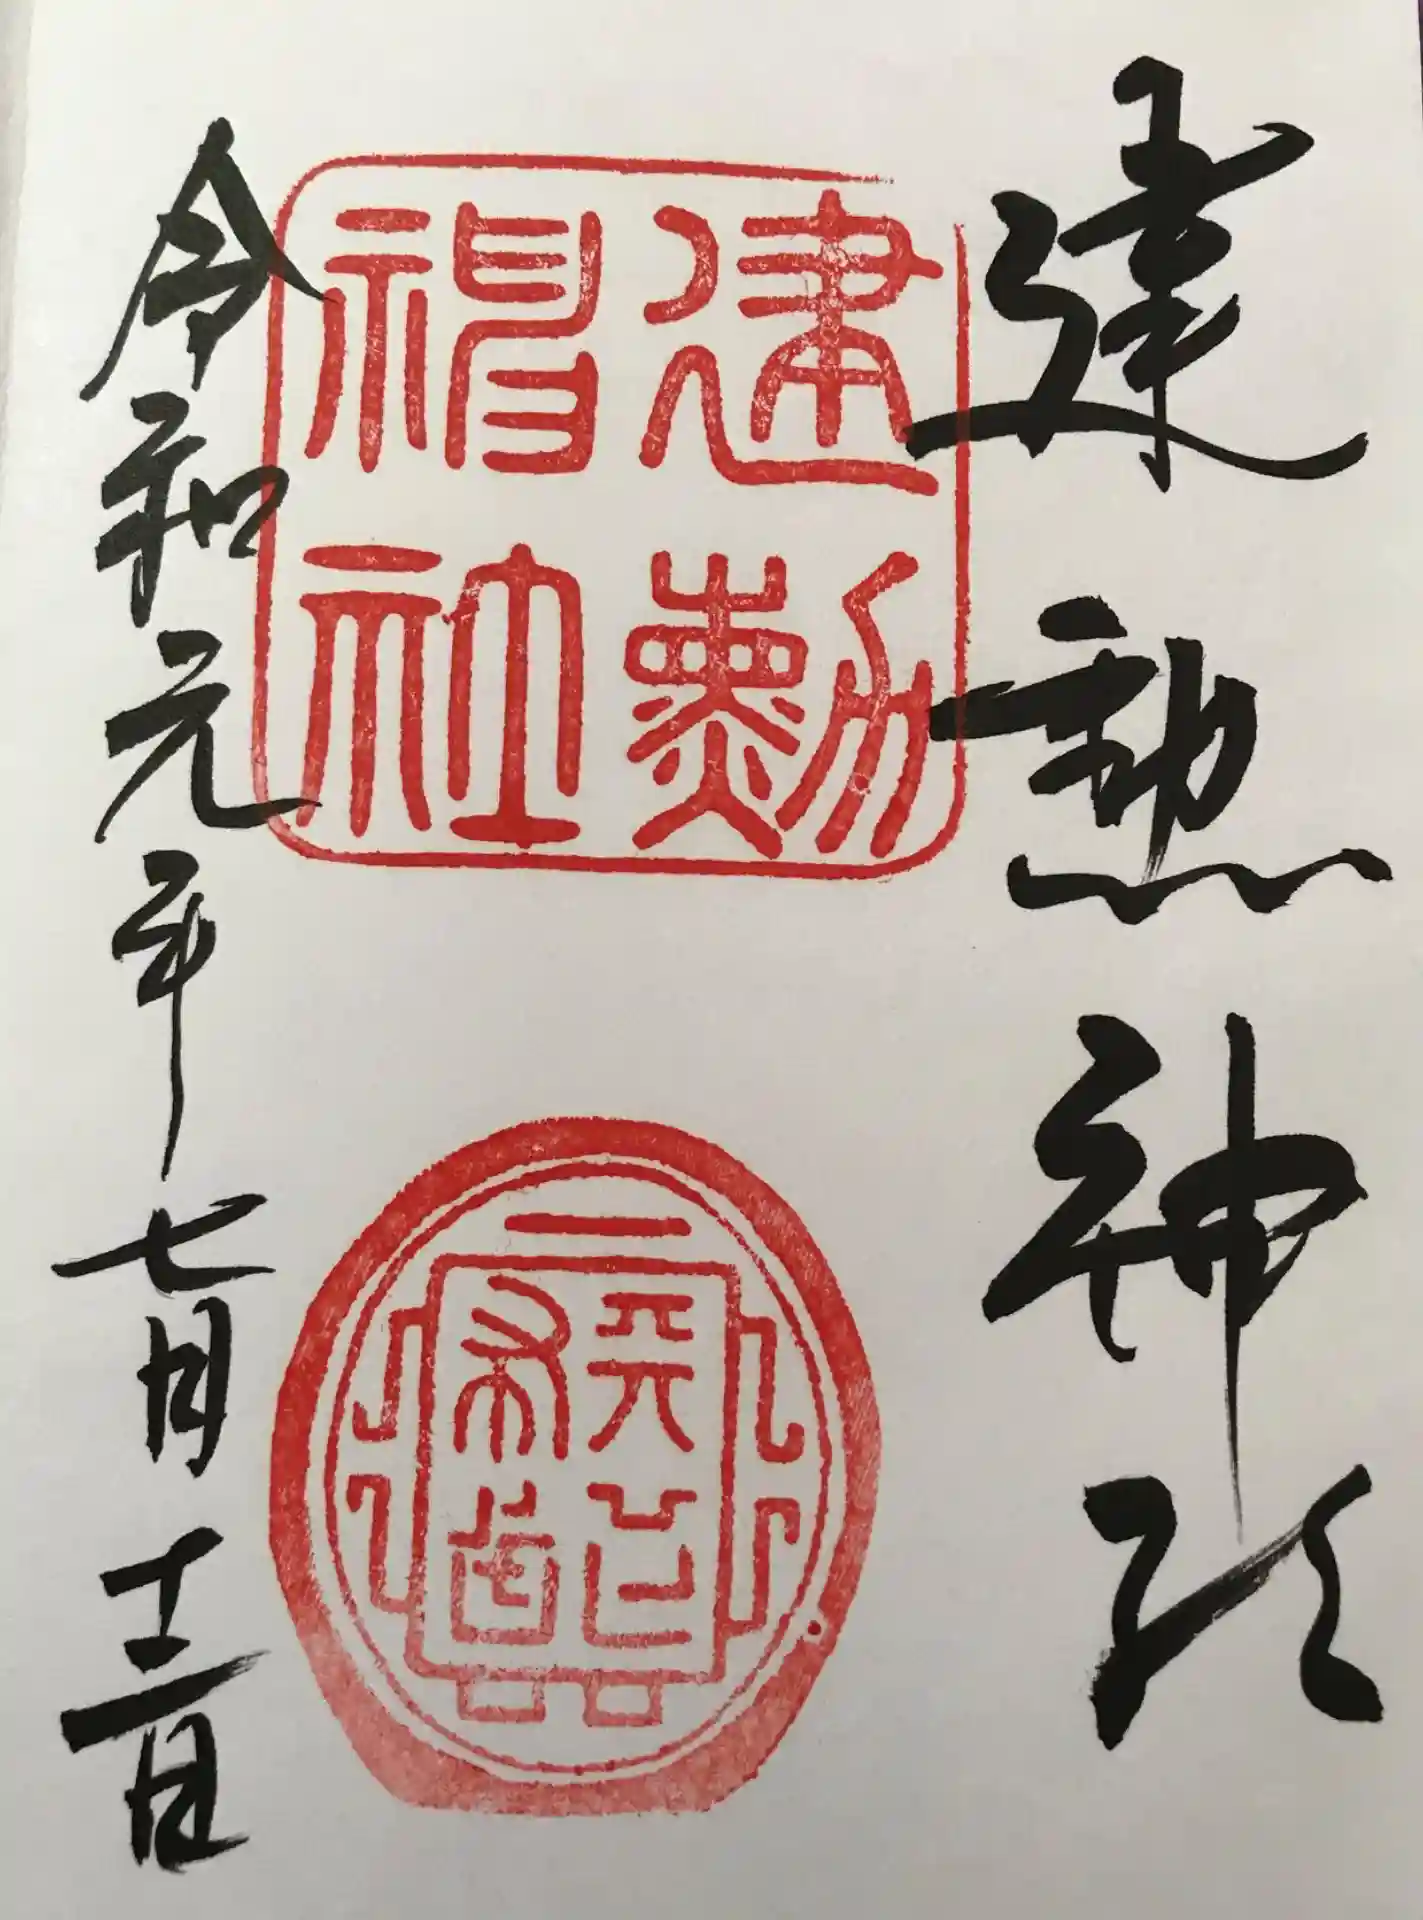 建勲神社
建勳
神社
令和元年七月十二日